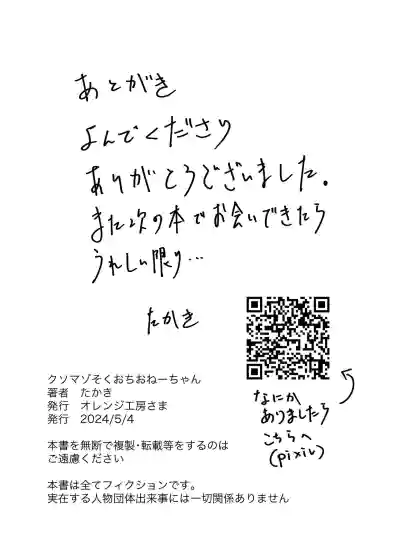 あとがき
よんでくださり
ありがとうございました。
また次の本でお会いできたら
うれしい限り…
たかき
なにか
ありましたら
こちらへ
(pixiv)
クソマゾそくおちおねーちゃん
著者　たかき
発行　オレンジ工房さま
発行　2024/5/4
本書を無断で複製・転載等をするのは
ご遠慮ください
本書は全てフィクションです。
実在する人物団体出来事には一切関係ありません